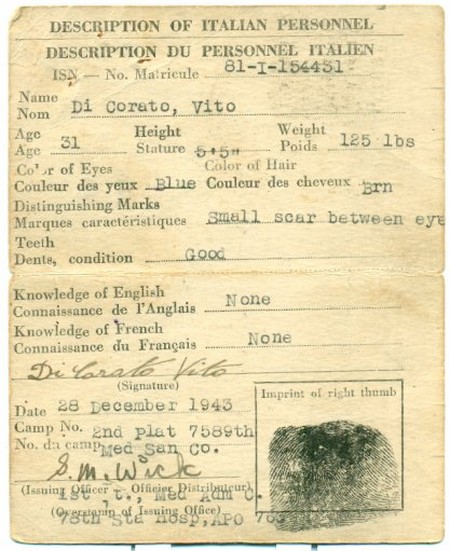 DESCRIPTION OF ITALIAN PERSONNEL
DESCRIPTION DU PERSONNEL ITALIEN
ISN — No. Matricule 81-I-154431
Name
Nom Di Corato, Vito
Age Height Weight
Age 31 Stature 5'5" Poids 125 lbs
Color of Eyes Color of Hair
Couleur des yeux Blue Couleur des cheveux Brn
Distinguishing Marks
Marques caractéristiques Small scar between eye
Teeth
Dents, condition Good
Knowledge of English
Connaissance de l'Anglais None
Knowledge of French
Connaissance du Français None
Di Corato Vito
(Signature)
Imprint of right thumb
Date 28 December 1943
Camp No. 2nd plat 7589th
No. du camp Med San Co.
S. M. Wick
(Issuing Officer — Officier Distributeur)
1st Lt., Med Adm C.
(Overstamp of Issuing Office)
78th Sta Hosp, APO